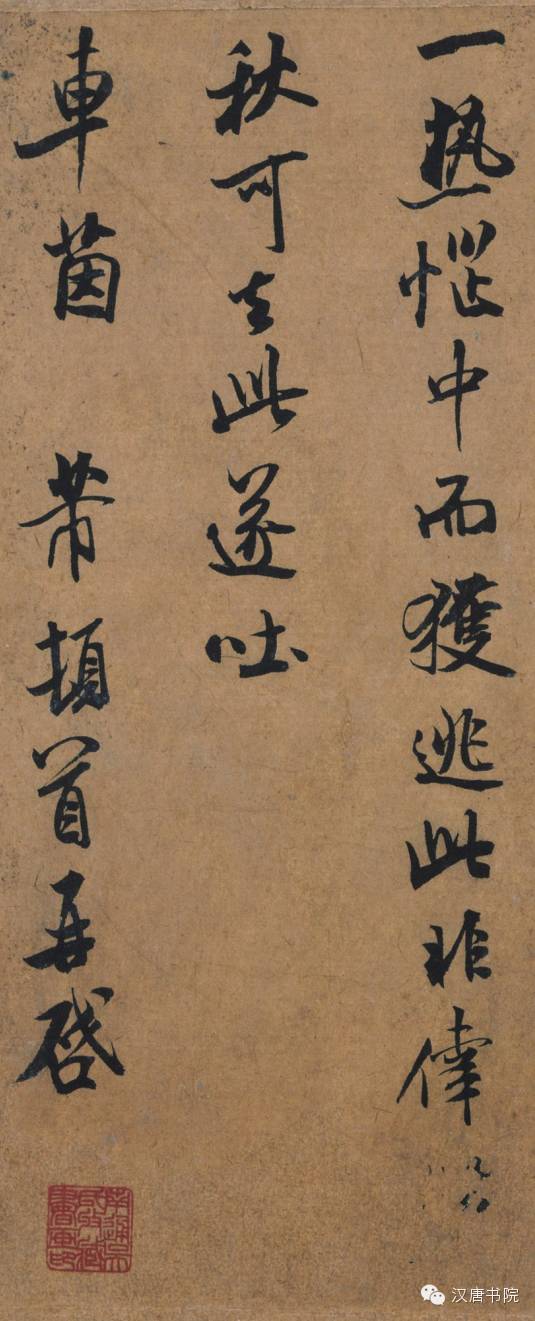 一熱惱中而獲逃此非倖
秋可去此遂吐
車茵 芾頓首再啓
汉唐书院